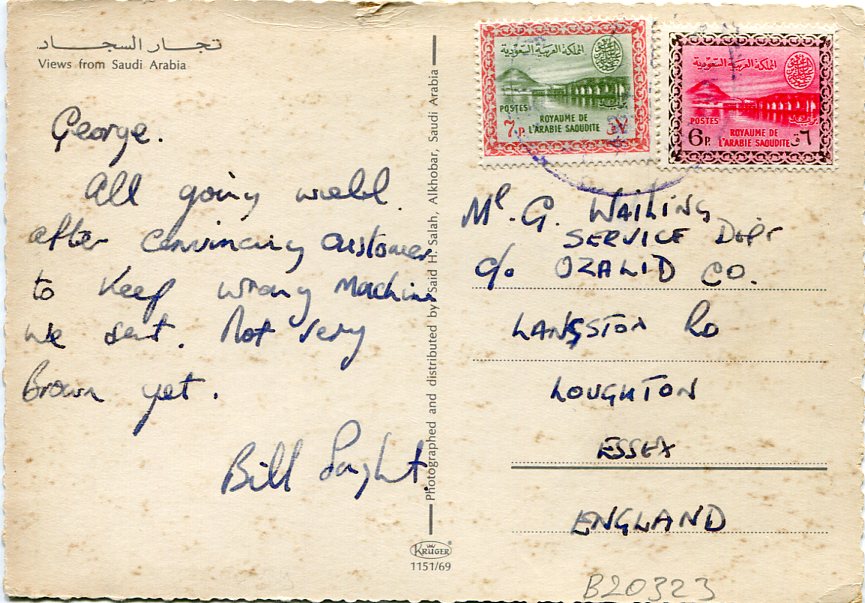 تجار السجاد
Views from Saudi Arabia
George.
All going well
after convincing customer
to keep wrong machine
we sent. Not very
brown yet.
Bill
Photographed and distributed by Said H. Salah, Alkhobar, Saudi Arabia
KRÜGER
1151/69
المملكة العربية السعودية
POSTES
ROYAUME DE
L'ARABIE SAOUDITE
7.P.
المملكة العربية السعودية
POSTES
ROYAUME DE
L'ARABIE SAOUDITE
6P.
٦ ق
Mr. G. WAILING
SERVICE DEPT
c/o OZALID CO.
LANGSTON RD
LOUGHTON
ESSEX
ENGLAND
B20323